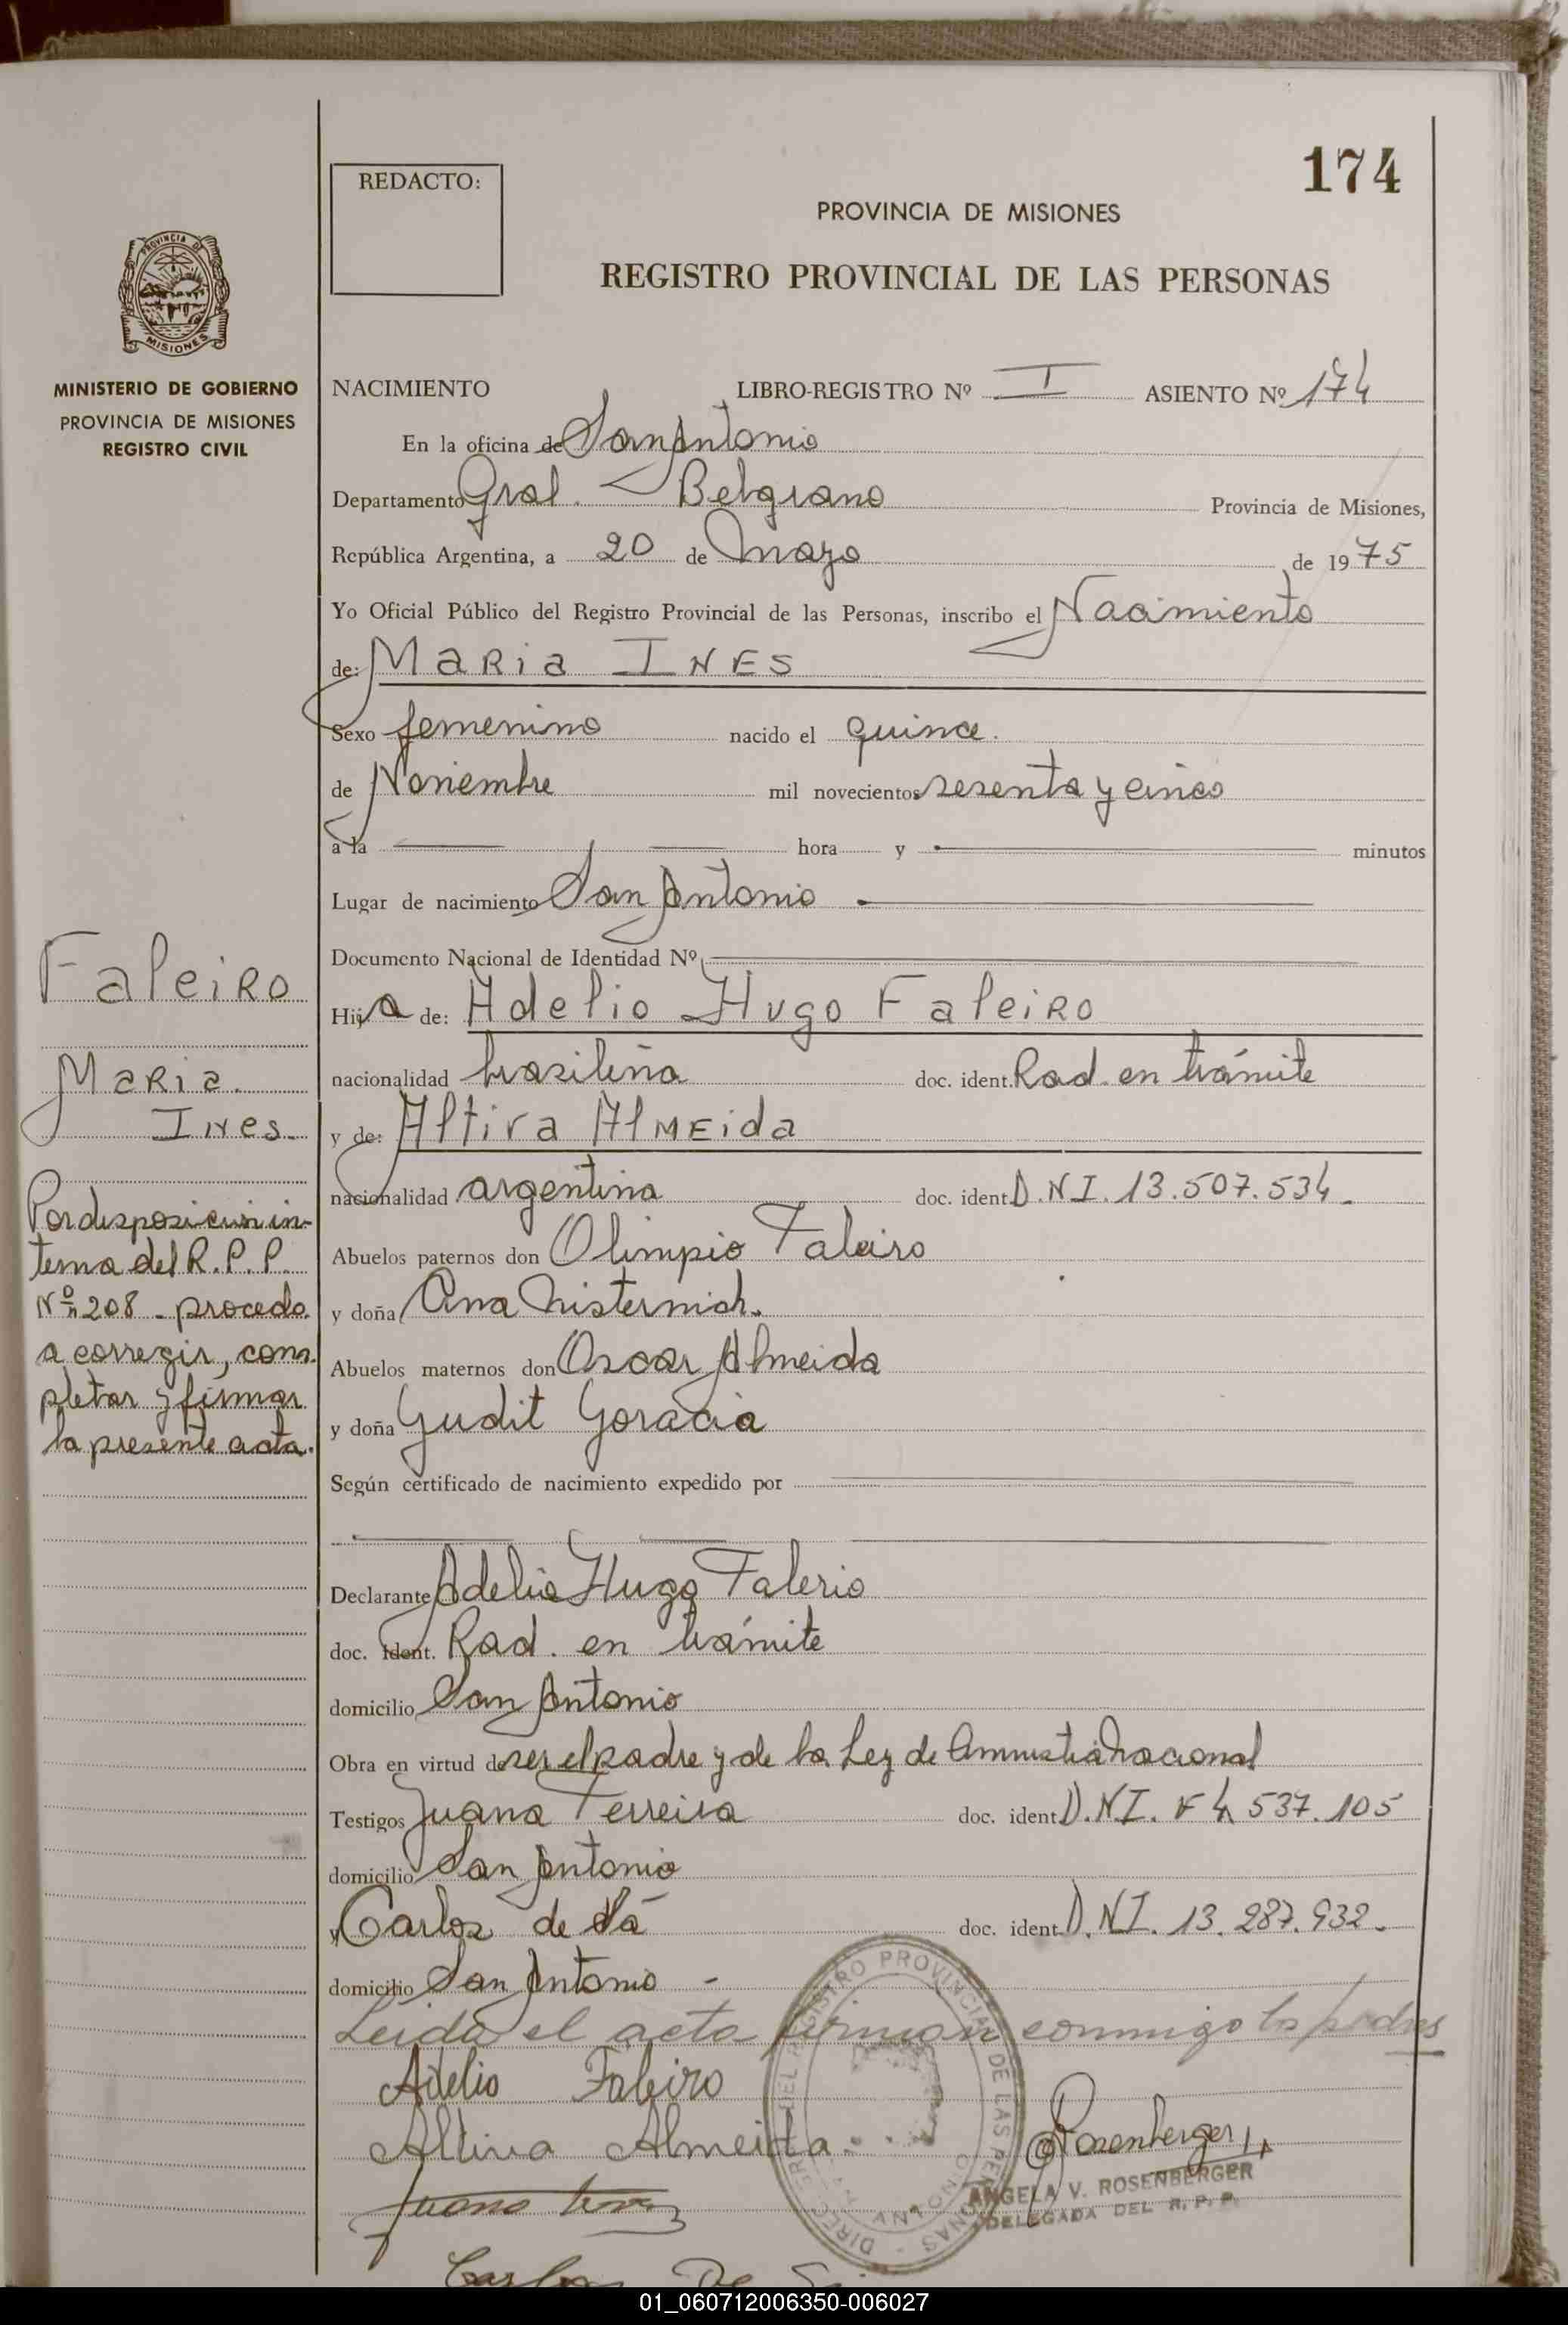 174
REDACTO:
PROVINCIA DE MISIONES
REGISTRO PROVINCIAL DE LAS PERSONAS
PROVINCIA DE
MISIONES
MINISTERIO DE GOBIERNO
PROVINCIA DE MISIONES
REGISTRO CIVIL
NACIMIENTO LIBRO-REGISTRO Nº I ASIENTO Nº 174
En la oficina de San Antonio
Departamento Gral. Belgrano Provincia de Misiones,
República Argentina, a 20 de Mayo de 1975
Yo Oficial Público del Registro Provincial de las Personas, inscribo el Nacimiento
de: MARIA INES
Sexo femenino nacido el quince.
de Noviembre mil novecientos sesenta y cinco
a la hora y minutos
Lugar de nacimiento San Antonio
Documento Nacional de Identidad Nº
Faleiro
Maria
Ines
Por disposicion in-
terna del R.P.P.
Nº 208 - procedo
a corregir, com-
pletar y firmar
la presente acta.
Hija de: Adelio Hugo Faleiro
nacionalidad brasileña doc. ident. Rad. en trámite
y de: Altiva Almeida
nacionalidad argentina doc. ident. D.N.I. 13.507.534.
Abuelos paternos don Olimpio Faleiro
y doña Ana
Abuelos maternos don Oscar Almeida
y doña Yudit Goracia
Según certificado de nacimiento expedido por
Declarante Adelio Hugo Falerio
doc. Ident. Rad. en trámite
domicilio San Antonio
Obra en virtud de ser el padre y de la Ley de Amnistia Nacional
Testigos Juana Ferreira doc. ident. D.N.I. F 4.537.105
domicilio San Antonio
y Carlos de Sá doc. ident. D.N.I. 13.287.932.
domicilio San Antonio -
Leida el acta firman conmigo los padres
Adelio Faleiro
Altiva Almeida.
Rosenberger
ANGELA V. ROSENBERGER
DELEGADA DEL R.P.P.
Juana
Carlos De Sa
01_060712006350-006027